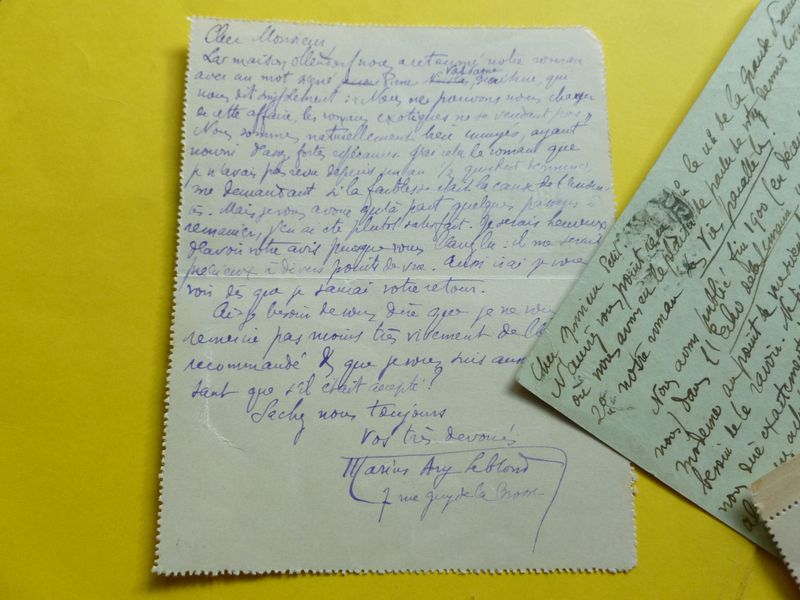 Cher Monsieur
La maison Ollendorf nous a retourné notre roman
avec un mot signé Pierre Valdagne, qui
nous dit simplement : « Nous ne pouvons nous charger
de cette affaire, les romans exotiques ne se vendant pas »
Nous sommes naturellement bien ennuyés, ayant
nourri d'assez fortes espérances. J'ai relu le roman que
je n'avais pas revu depuis un an 1/2
me demandant si la faiblesse était la cause de l'
Mais je vous avoue qu'à part quelques passages à
remanier, j'en ai été plutôt satisfait. Je serais heureux
d'avoir votre avis puisque vous l'avez lu : il me serait
précieux à divers points de vue. Aussi irai-je vous
voir dès que je saurai votre retour.
Ai-je besoin de vous dire que je ne vous
remercie pas moins très vivement de l'
recommandé & que je vous suis aussi
sant que s'il était accepté ?
Sachez nous toujours
Vos très dévoués
Marius Ary Leblond
7 rue Guy de la Brosse
Cher Monsieur
le no de la Grande France
où nous avons eu le plaisir de parler de votre dernier livre
notre roman Les Vies parallèles
Nous avons publié fin 1900 (en
nous) dans l'Echo de la Semaine
moderne au point de vue
besoin de le savoir.
nous dire exactement